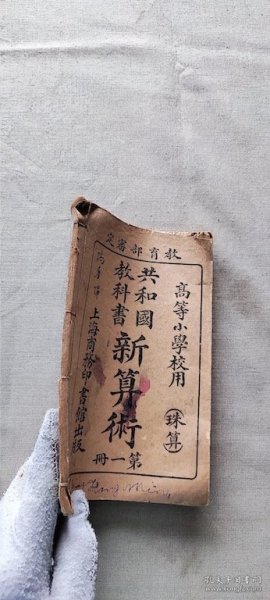 教育部審定
高等小學校用
珠算
共和國
教科書
新算術
第一冊
上海商務印書館出版